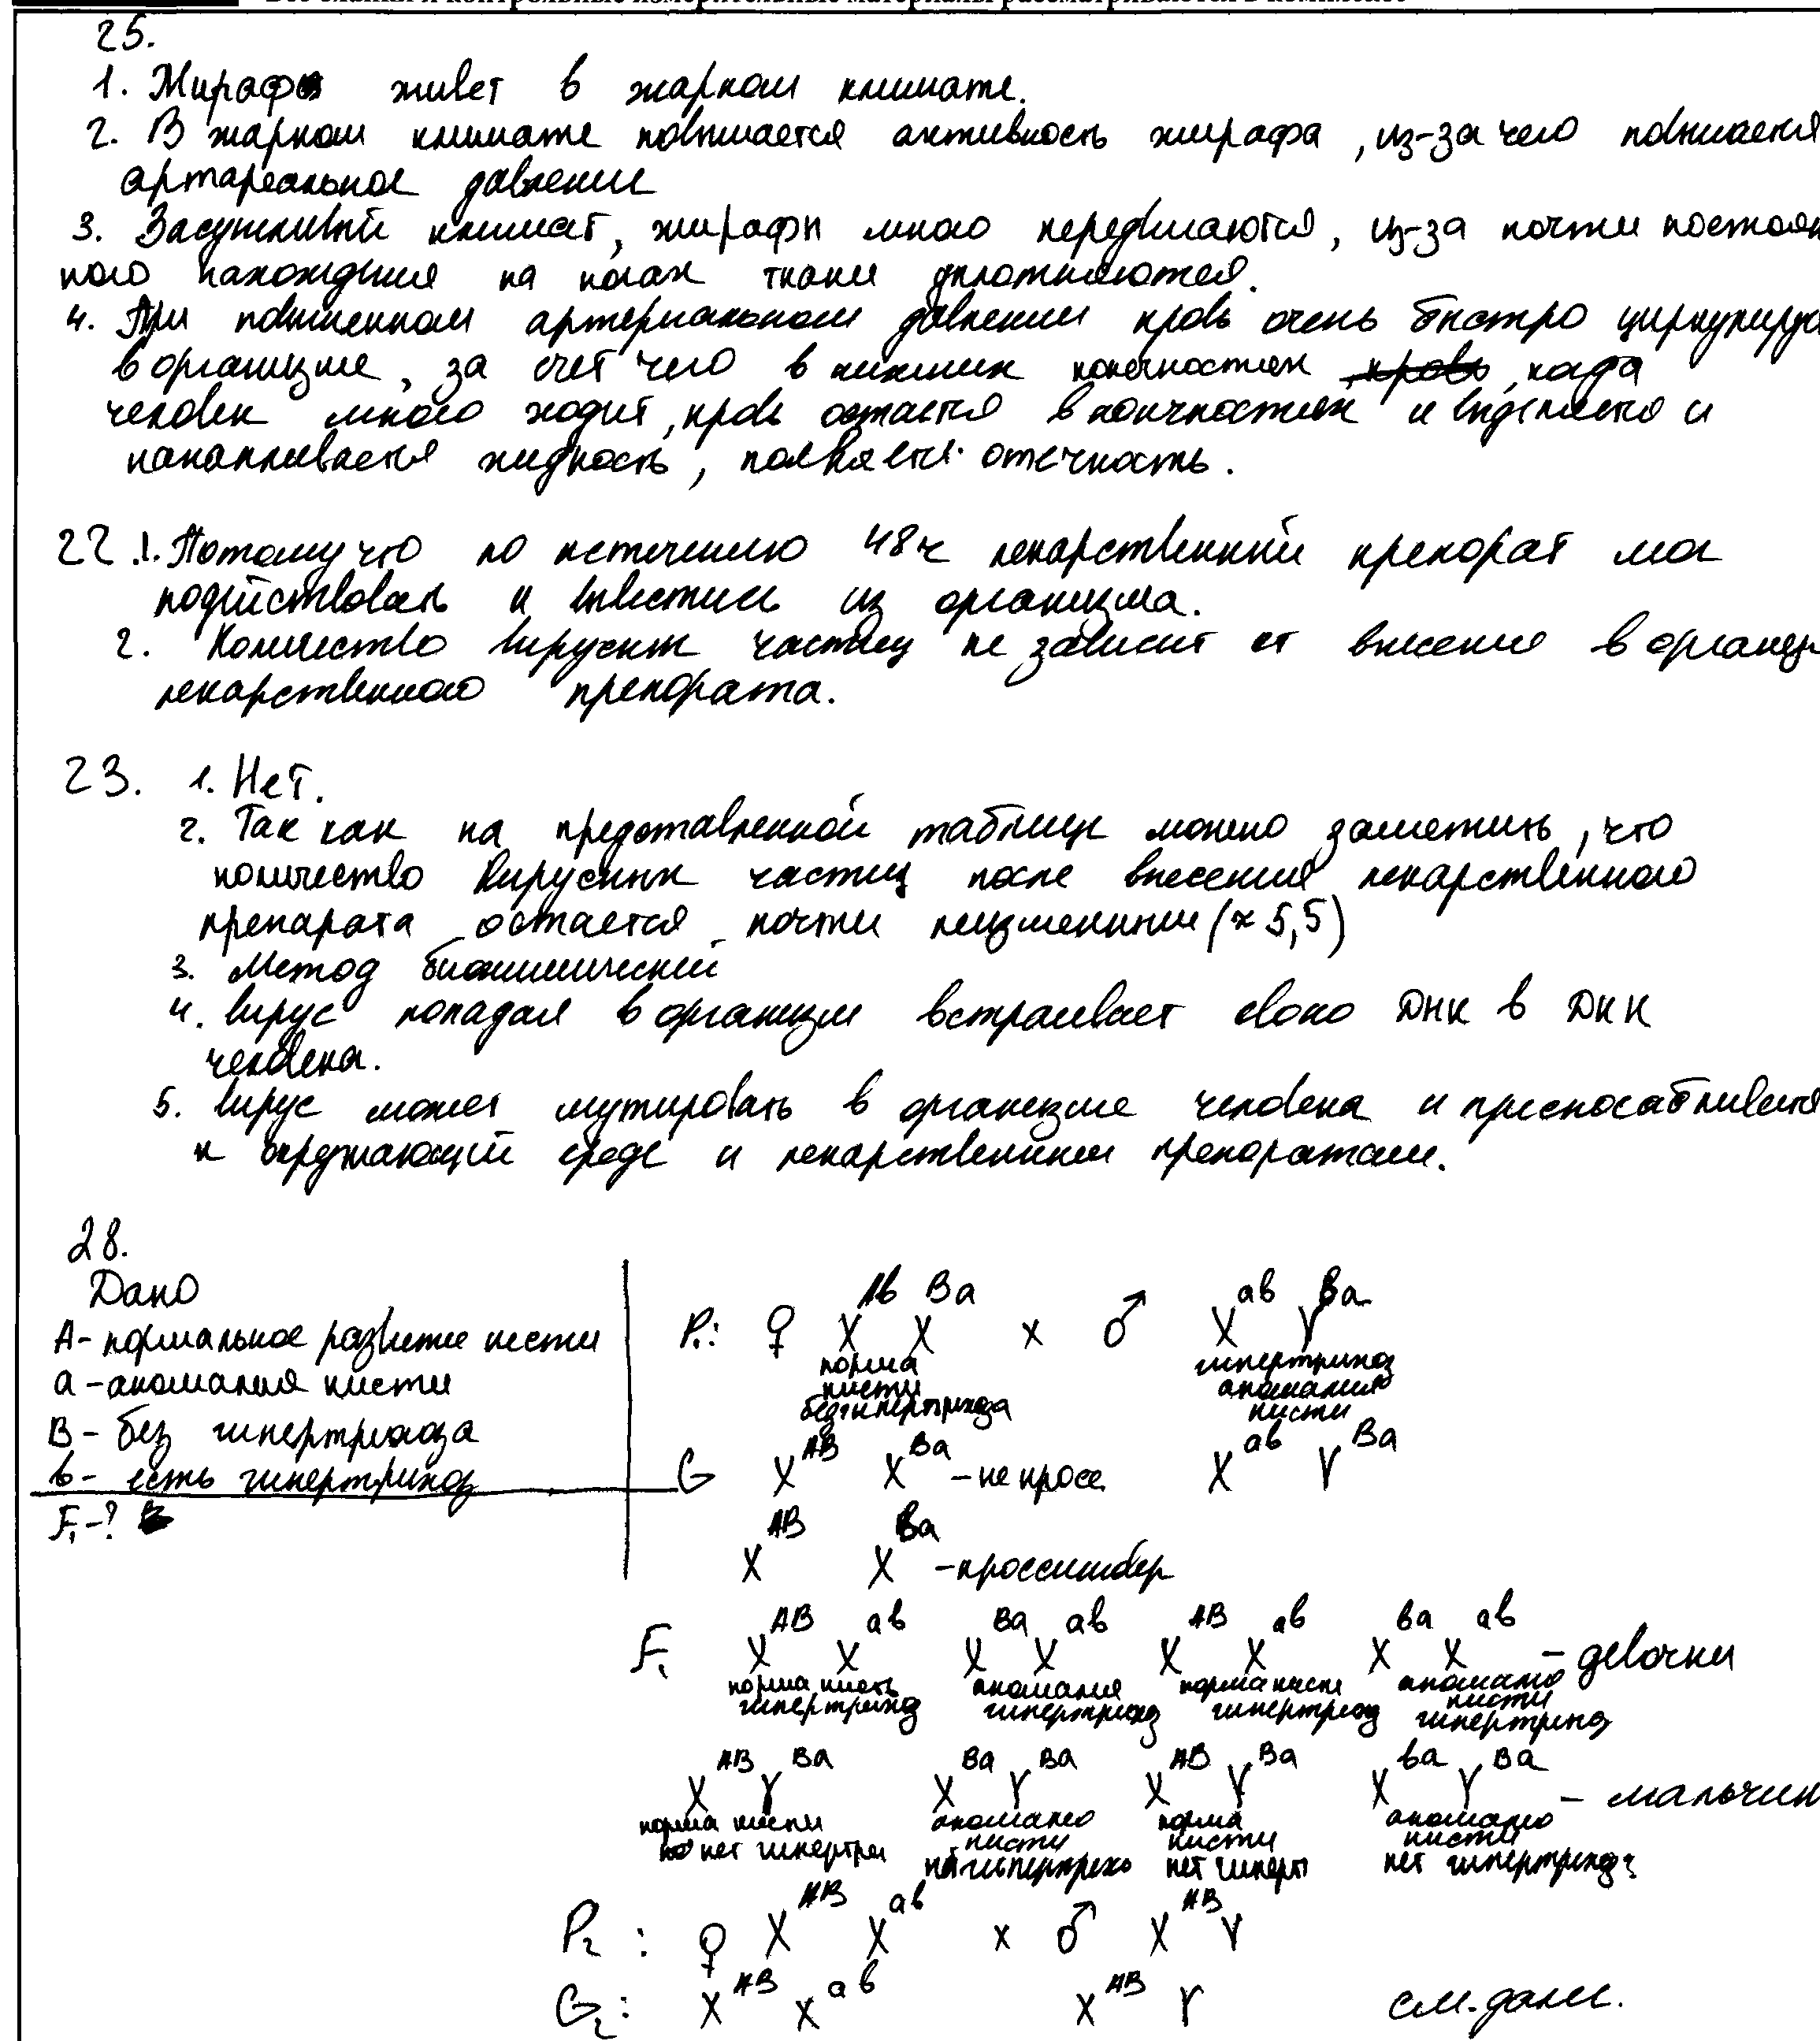 Все бланки и контрольные измерительные материалы рассматриваются в комплекте
25.
1. Жирафы живет в жарком климате.
2. В жарком климате повышается активность жирафа, из-за чего повышается
артареальное давление
3. Засушливый климат, жирафы много передвигаются, из-за почти постоян
ного нахождения на ногах ткани уплотняются.
4. При повышенном артериальном давлении кровь очень быстро циркулируе
в организме, за счет чего в нижних конечностях когда
человек много ходит, кровь остается в кончностях и выделяется и
накапливается жидкость, появляется отечность.
22. 1. Потому что по истечению 48ч лекарственный препорат мог
подействовать и вывестись из организма.
2. Количество вирусных частиц не зависит от внесение в организм
лекарственного препората.
23. 1. Нет.
2. Так как на предоставленной таблице можно заметить, что
количество вирусных частиц после внесения лекарственного
препарата остается почти неизменным (≈ 5,5)
3. Метод биохимический
4. Вирус попадая в организм встраивает свою ДНК в ДНК
человека.
5. Вирус может мутировать в организме человека и приспосабливается
к окружающей среде и лекарственным препоратам.
28.
Дано
А - нормальное развитие кисти
а - аномалия кисти
В - без гипертрихоза
в - есть гипертрихоз
F₁ - ?
P₁: ♀ X^Ав X^Ва x ♂ X^ав Y^Ва
норма кисти без гипертрихоза
гипертрихоз аномалия кисти
G X^АВ X^Ва - не кросс X^ав Y^Ва
X^АВ X^ва - кроссинговер
F₁ X^АВ X^ав X^Ва X^ав X^АВ X^ав X^ва X^ав - девочки
норма кисть гипертрихоз
аномалия гипертрихоз
норма кисти гипертрихоз
аномалию кисти гипертрихоз
X^АВ Y^Ва X^Ва Y^Ва X^АВ Y^Ва X^ва Y^Ва - мальчики
норма кисти нет гипертри
аномалию кисти нет гипертрихо
норма кисти нет гиперт
аномалию кисти нет гипертрихоз
P₂: ♀ X^АВ X^ав x ♂ X^АВ Y
G₂: X^АВ X^ав X^АВ Y см. далее.